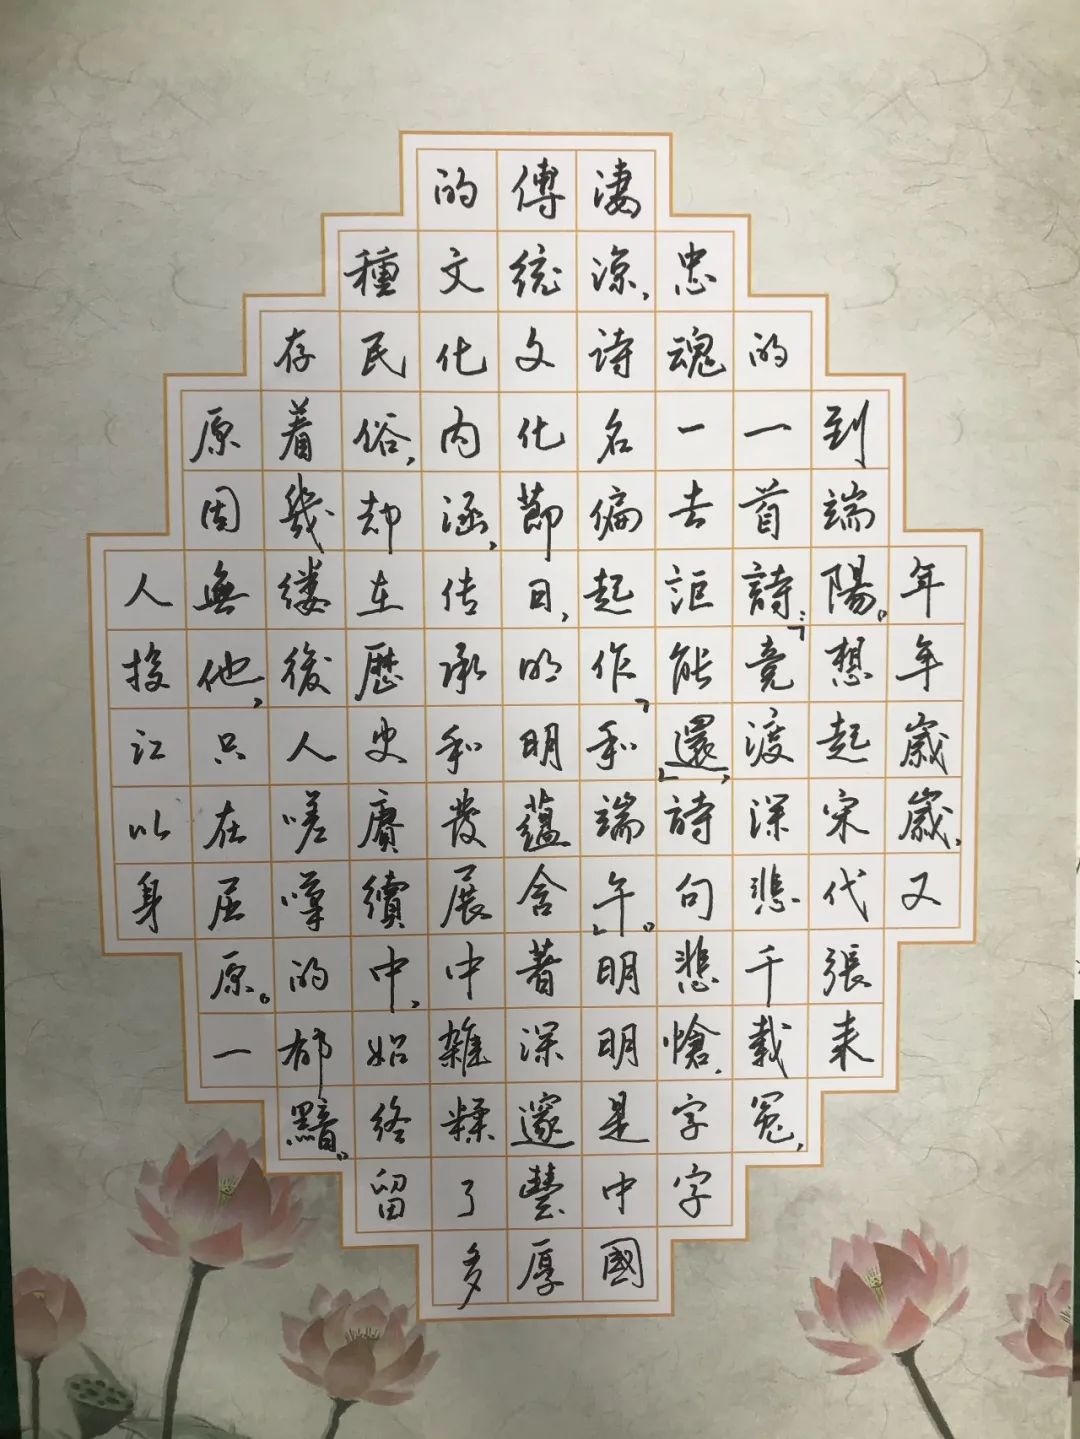 年年歲歲,又
到端陽。想起宋代張耒
的一首詩:「竞渡深悲千載冤,
忠魂一去詎能還」,詩句悲愴,字字
淒涼,詩名偏起作「和端午」。明明是中國
傳統文化節日,明明蘊含著深邃豐厚
的文化内涵,传承和發展中雜糅了多
種民俗,却在歷史賡續中,始終留
存着幾缕後人嗟嘆的郁黯。
原因無他,只在屈原。一
人投江以身